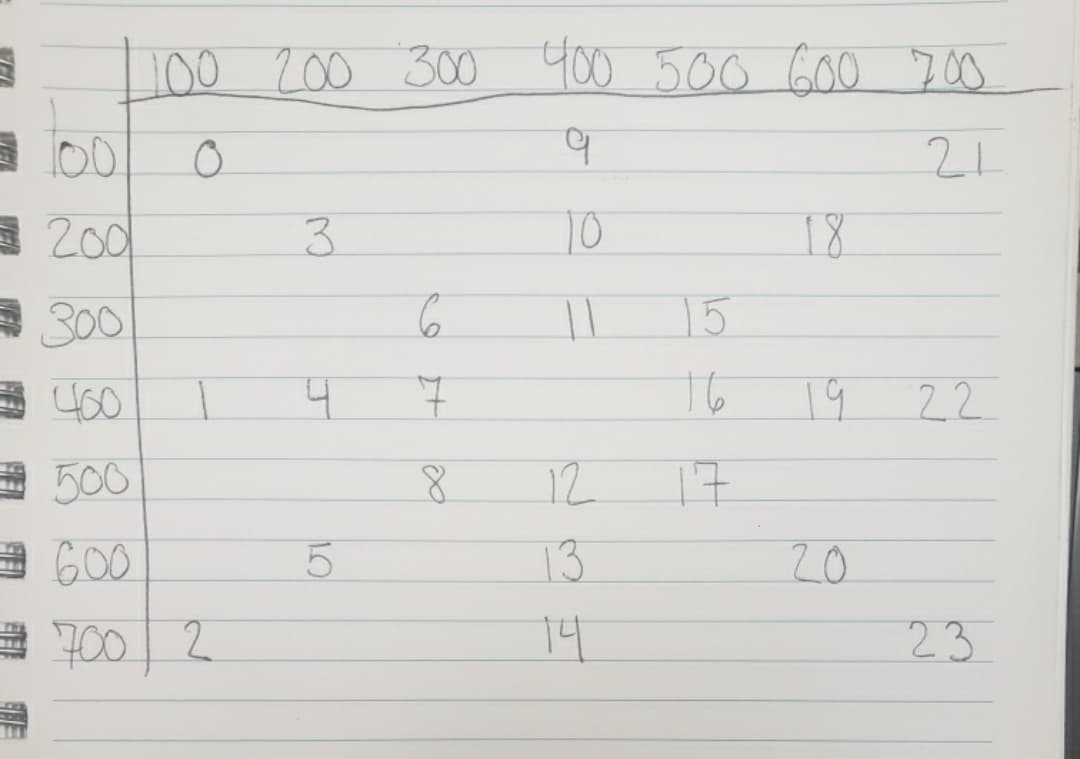 100 200 300 400 500 600 700
100 0 9 21
200 3 10 18
300 6 11 15
400 1 4 7 16 19 22
500 8 12 17
600 5 13 20
700 2 14 23